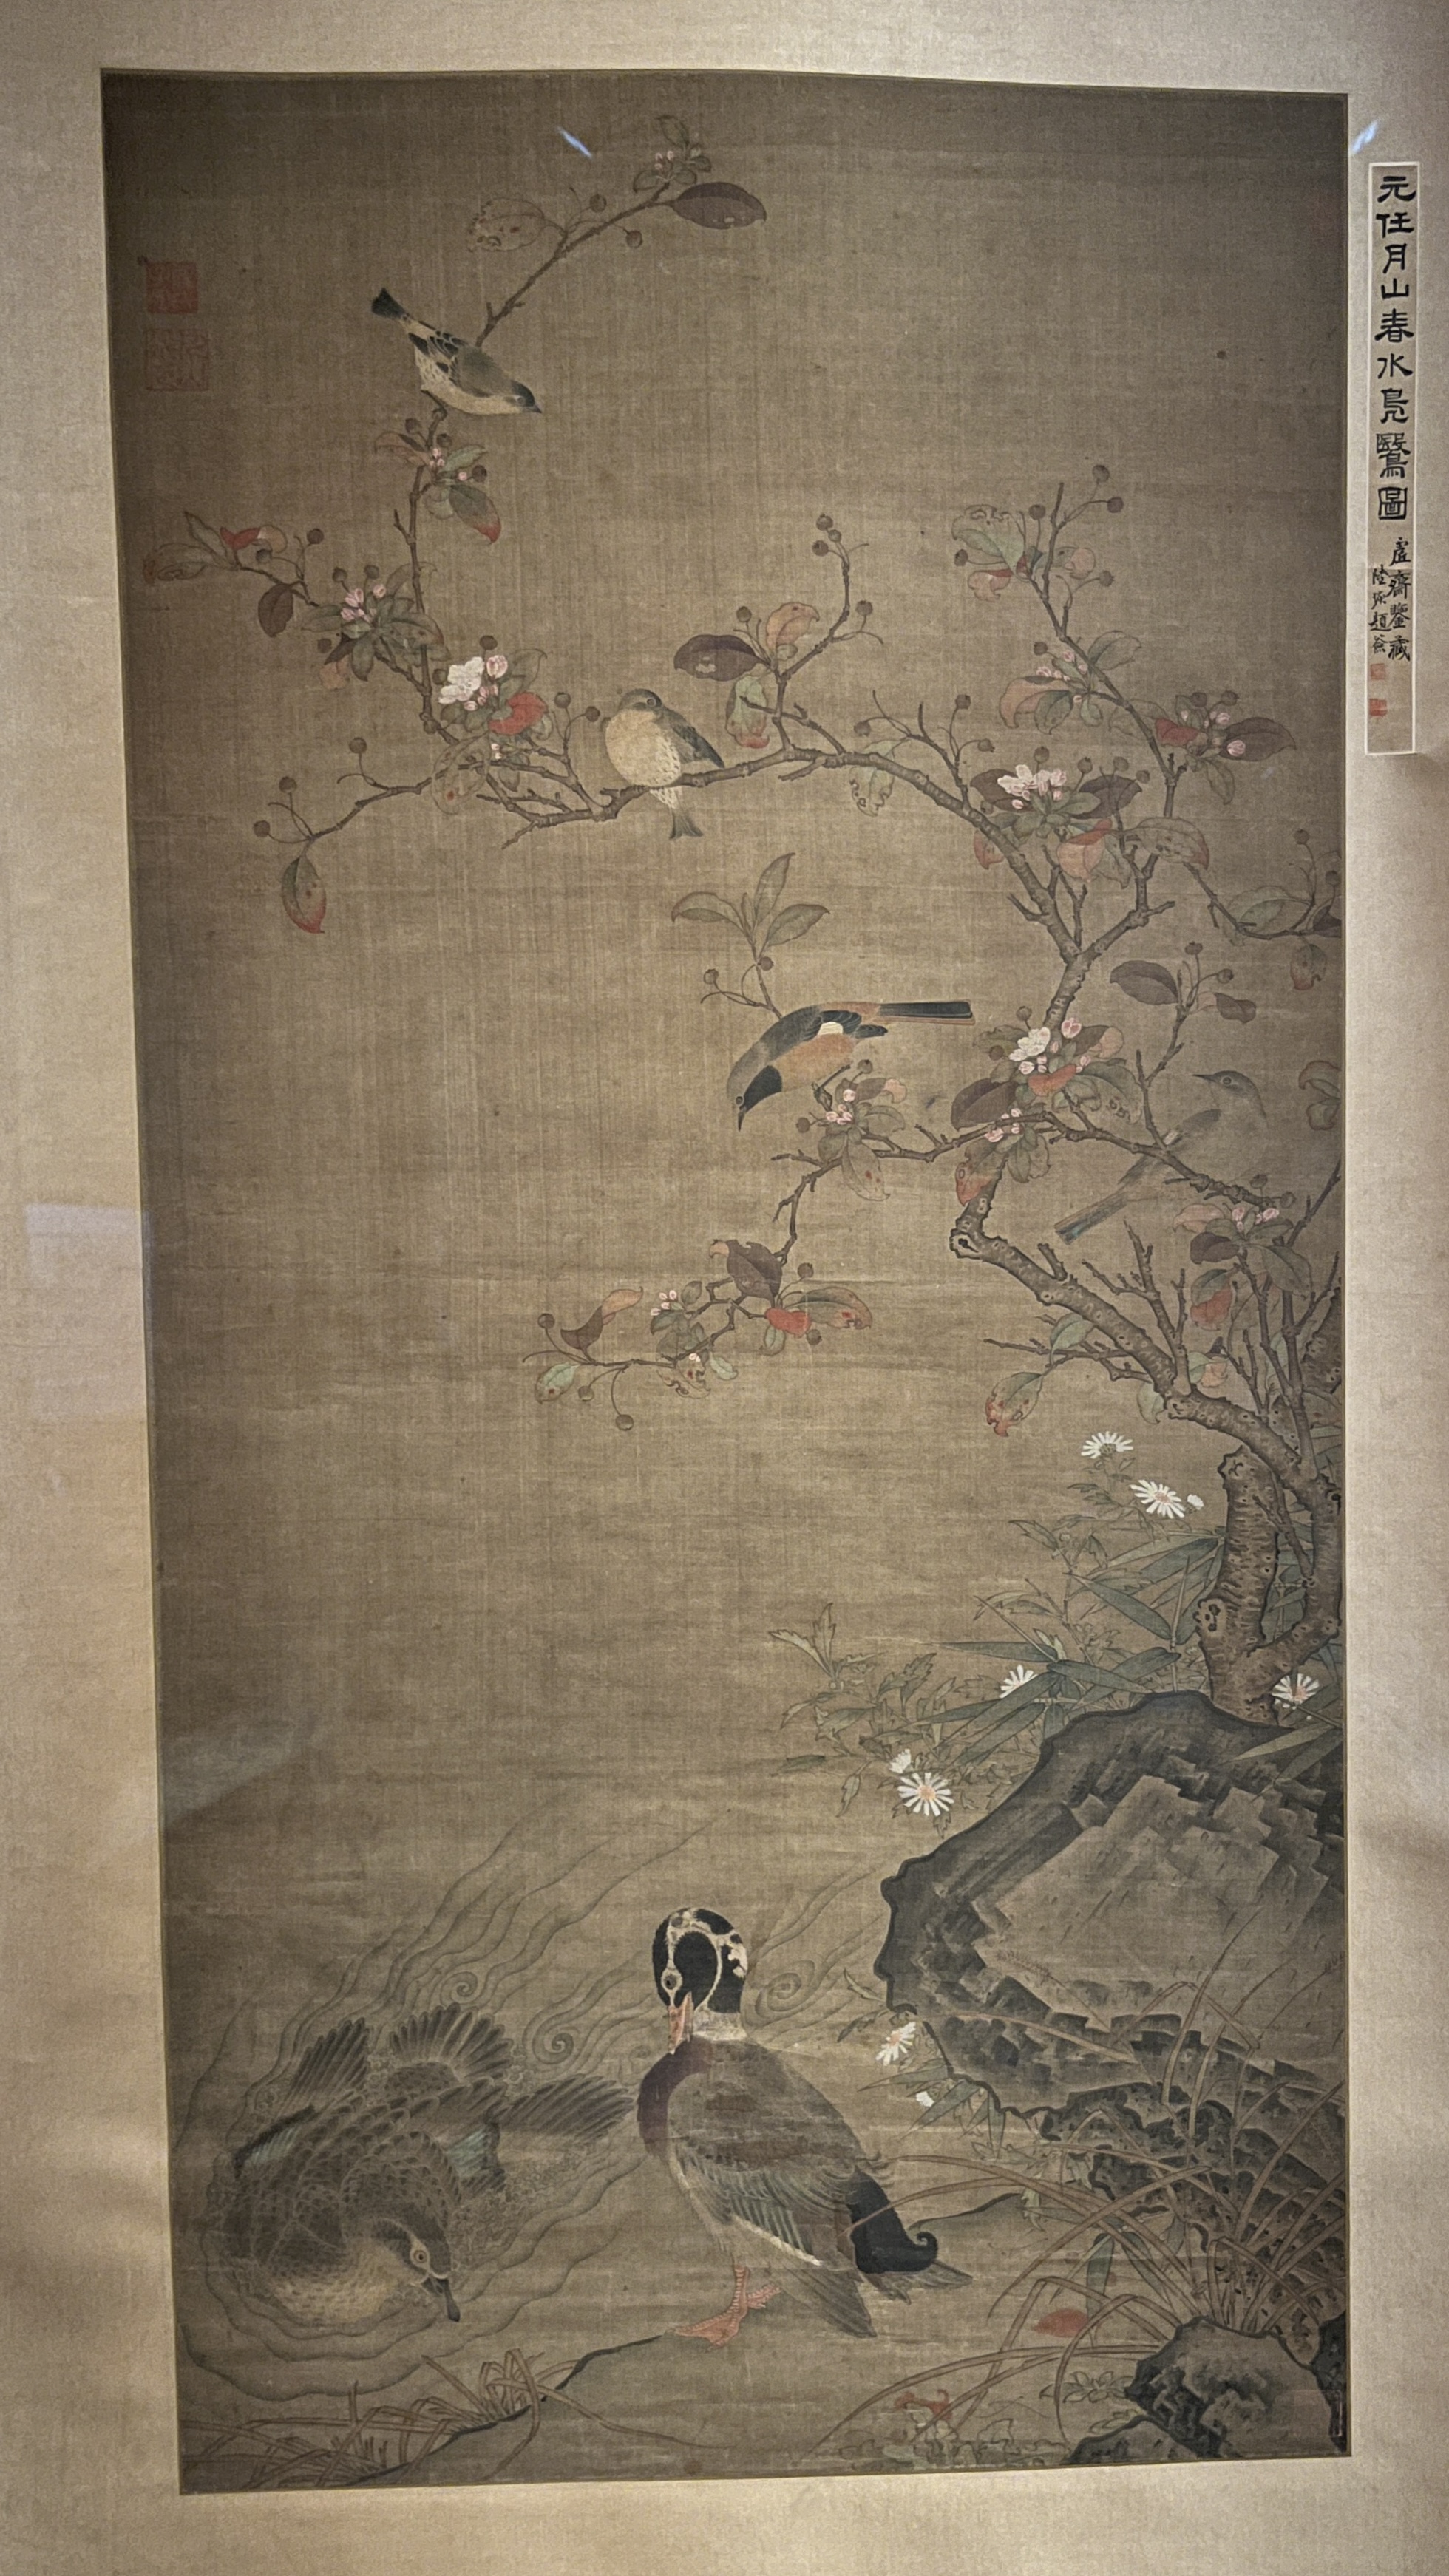 元任月山春水鳧鷖圖
虛齋鑒藏
陸恢題簽